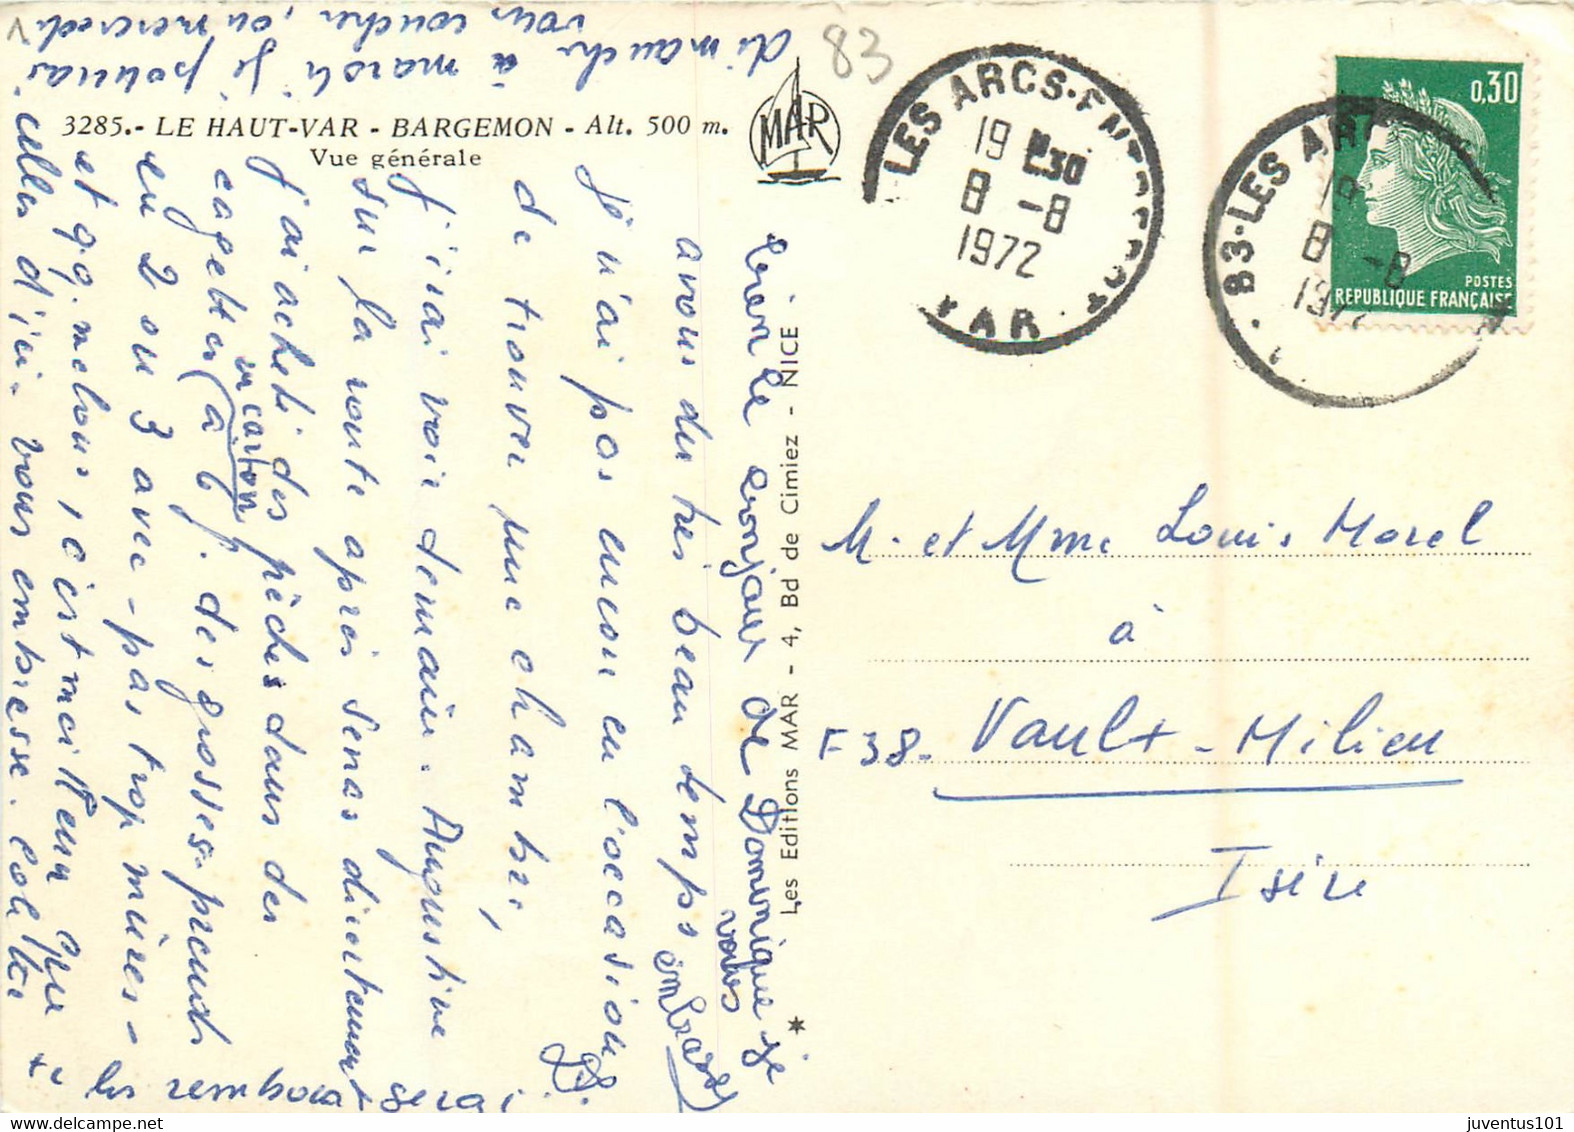 3285.- LE HAUT-VAR - BARGEMON - Alt. 500 m.
Vue générale
MAR
Les Editions MAR - 4, Bd de Cimiez - NICE
83
LES ARCS
19 30
8 -8
1972
VAR
83-LES ARC
19
8 -8
197
0,30
POSTES
REPUBLIQUE FRANÇAISE
M. et Mme Louis Morel
à
F38- Vaulx-Milieu
Isère
avons du très beau temps
je n'ai pas encore eu l'occasion
de trouver une chambre,
j'irai voir demain. Augustine
sur la route après Senas directement
j'ai acheté des pêches dans des
cagettes (à 6 f. des grosses, prends
en carton
en 2 ou 3 avec - pas trop mûres -
et qq. melons, c'est meilleur que
celles d'ici. vous embrasse. Colette
te les rembourserai
dimanche à mardi je pourrai
vous coucher, ou mercredi
bien le bonjour de Dominique je
vous
embrasse
juventus101